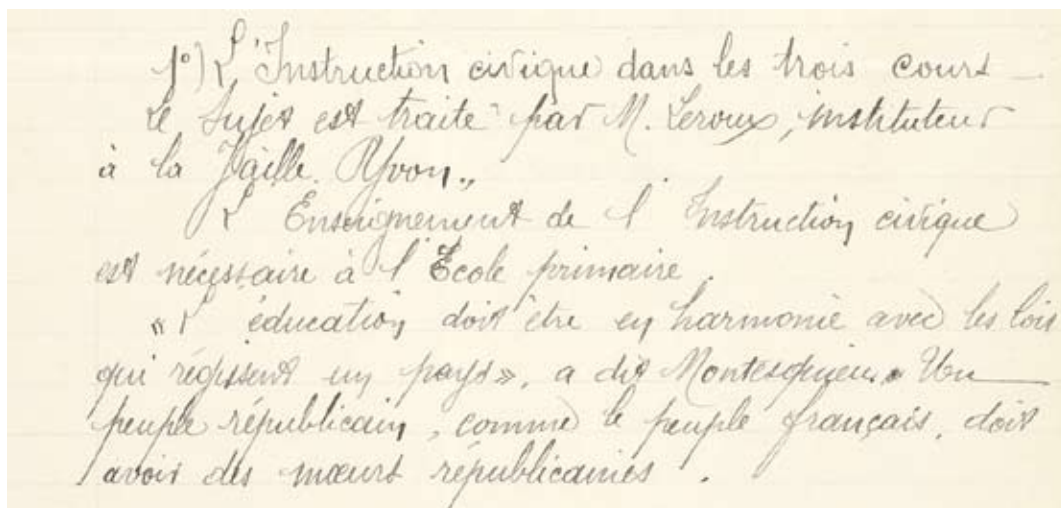 1°) L'Instruction civique dans les trois cours –
Le sujet est traité par M. Leroux, instituteur
à la Jaille Yvon.,
L'Enseignement de l'Instruction civique
est nécessaire à l'École primaire.
« L'éducation doit être en harmonie avec les lois
qui régissent un pays », a dit Montesquieu. Un
peuple républicain, comme le peuple français, doit
avoir des mœurs républicaines.